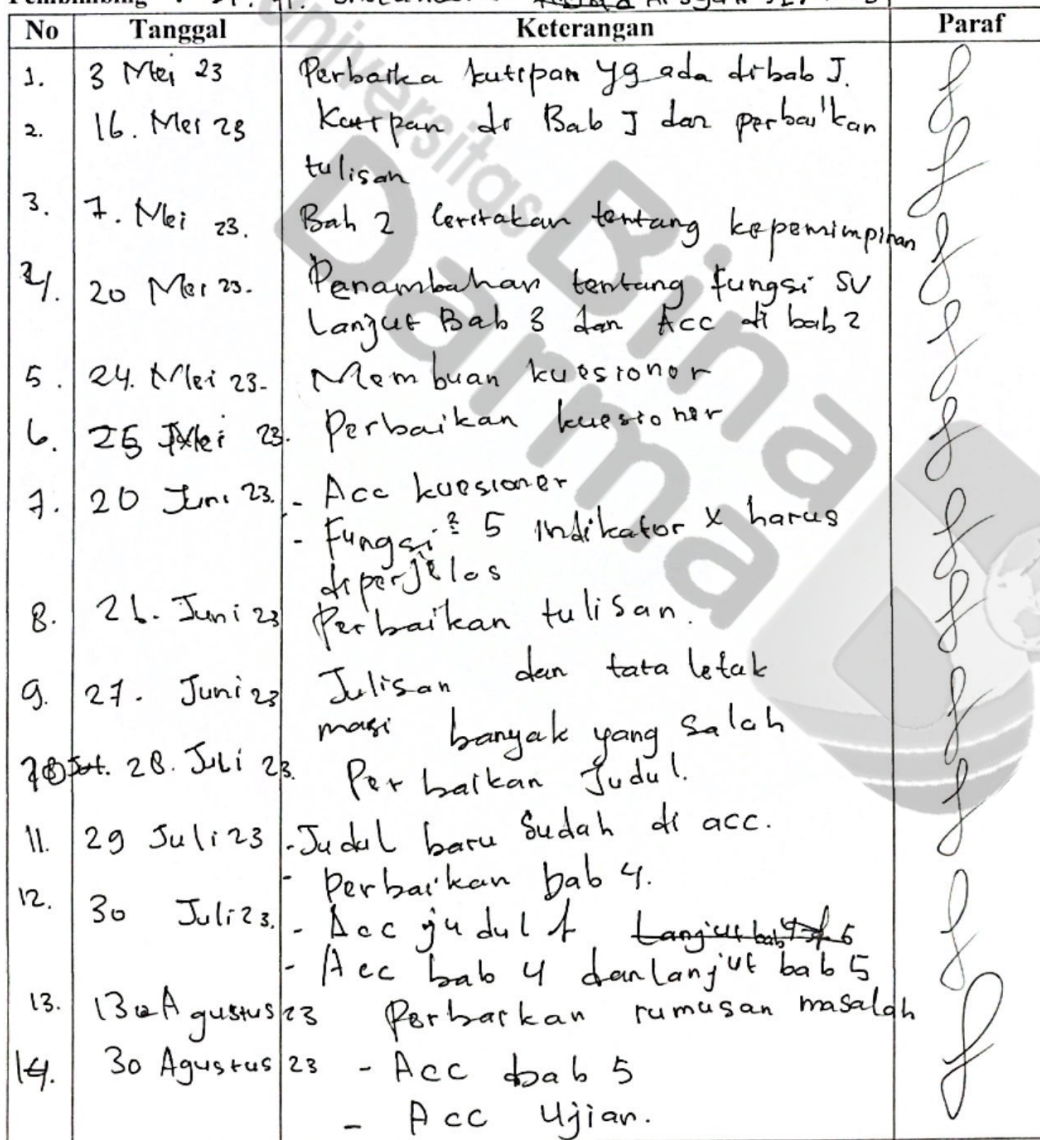 No Tanggal Keterangan Paraf
1. 3 Mei 23 Perbaika kutipan yg ada dibab I.
2. 16. Mei 23 Kutipan di Bab I dan perbaikan
tulisan
3. 7. Mei 23. Bab 2 ceritakan tentang kepemimpinan
4. 20 Mei 23. Penambahan tentang fungsi SV
Lanjut Bab 3 dan Acc di bab 2
5. 24. Mei 23. Membuan kuesioner
6. 25 Mei 23. Perbaikan kuesioner
7. 20 Juni 23. - Acc kuesioner
- Fungsi² 5 Indikator X harus
diperjelas
8. 26. Juni 23 Perbaikan tulisan.
9. 27. Juni 23 Tulisan dan tata letak
masi banyak yang salah
10 28. Juli 23. Perbaikan Judul.
11. 29 Juli 23 - Judul baru sudah di acc.
- Perbaikan bab 4.
12. 30 Juli 23. - Acc judul
- Acc bab 4 dan lanjut bab 5
13. 13 Agustus 23 Perbaikan rumusan masalah
14. 30 Agustus 23 - Acc bab 5
- Acc Ujian.
Universitas
Bina
Darma